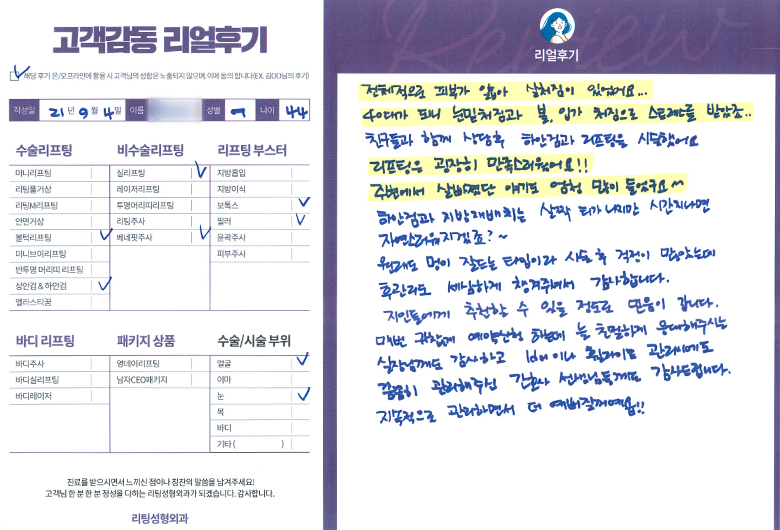 고객감동 리얼후기
해당 후기 온/오프라인에 활용 시 고객님의 성함은 노출되지 않으며, 이에 동의 합니다(EX. 김OO님의 후기)
작성일 21년 9월 4일 이름 성별 여 나이 44
수술리프팅 비수술리프팅 리프팅 부스터
미니리프팅 실리프팅 지방흡입
리팅풀거상 레이저리프팅 지방이식
리팅M리프팅 투명머리띠리프팅 보톡스
안면거상 리팅주사 필러
볼턱리프팅 베네핏주사 윤곽주사
미니브이리프팅 피부주사
반투명 머리띠 리프팅
상안검 & 하안검
엘라스티꿈
바디 리프팅 패키지 상품 수술/시술 부위
바디주사 영데이리프팅 얼굴
바디실리프팅 남자CEO패키지 이마
바디레이저 눈
목
바디
기타 ( )
진료를 받으시면서 느끼신 점이나 칭찬의 말씀을 남겨주세요!
고객님 한 분 한 분 정성을 다하는 리팅성형외과가 되겠습니다. 감사합니다.
리팅성형외과
Review
리얼후기
전체적으로 피부가 얇아 살처짐이 있었어요...
40대가 되니 눈밑처짐과 볼, 입가 처짐으로 스트레스를 받았죠..
친구들과 함께 상담후 하안검과 리프팅을 시술했어요
리프팅은 굉장히 만족스러웠어요!!
주변에서 살빠졌단 얘기도 엄청 많이 들었구요~
하안검과 지방재배치는 살짝 티가 나지만 시간지나면
자연스러워지겠죠?~
원래도 멍이 잘드는 타입이라 시술 후 걱정이 많았는데
후관리도 세심하게 챙겨주셔서 감사합니다.
지인들에게 추천할 수 있을 정도로 믿음이 갑니다.
매번 예약변경 늘 친절하게 응대해주시는
실장님께도 감사하고 관리에도
꼼꼼히 관리해주신 간호사 선생님들께도 감사드립니다.
지속적으로 관리하면서 더 예뻐질꺼예요!!